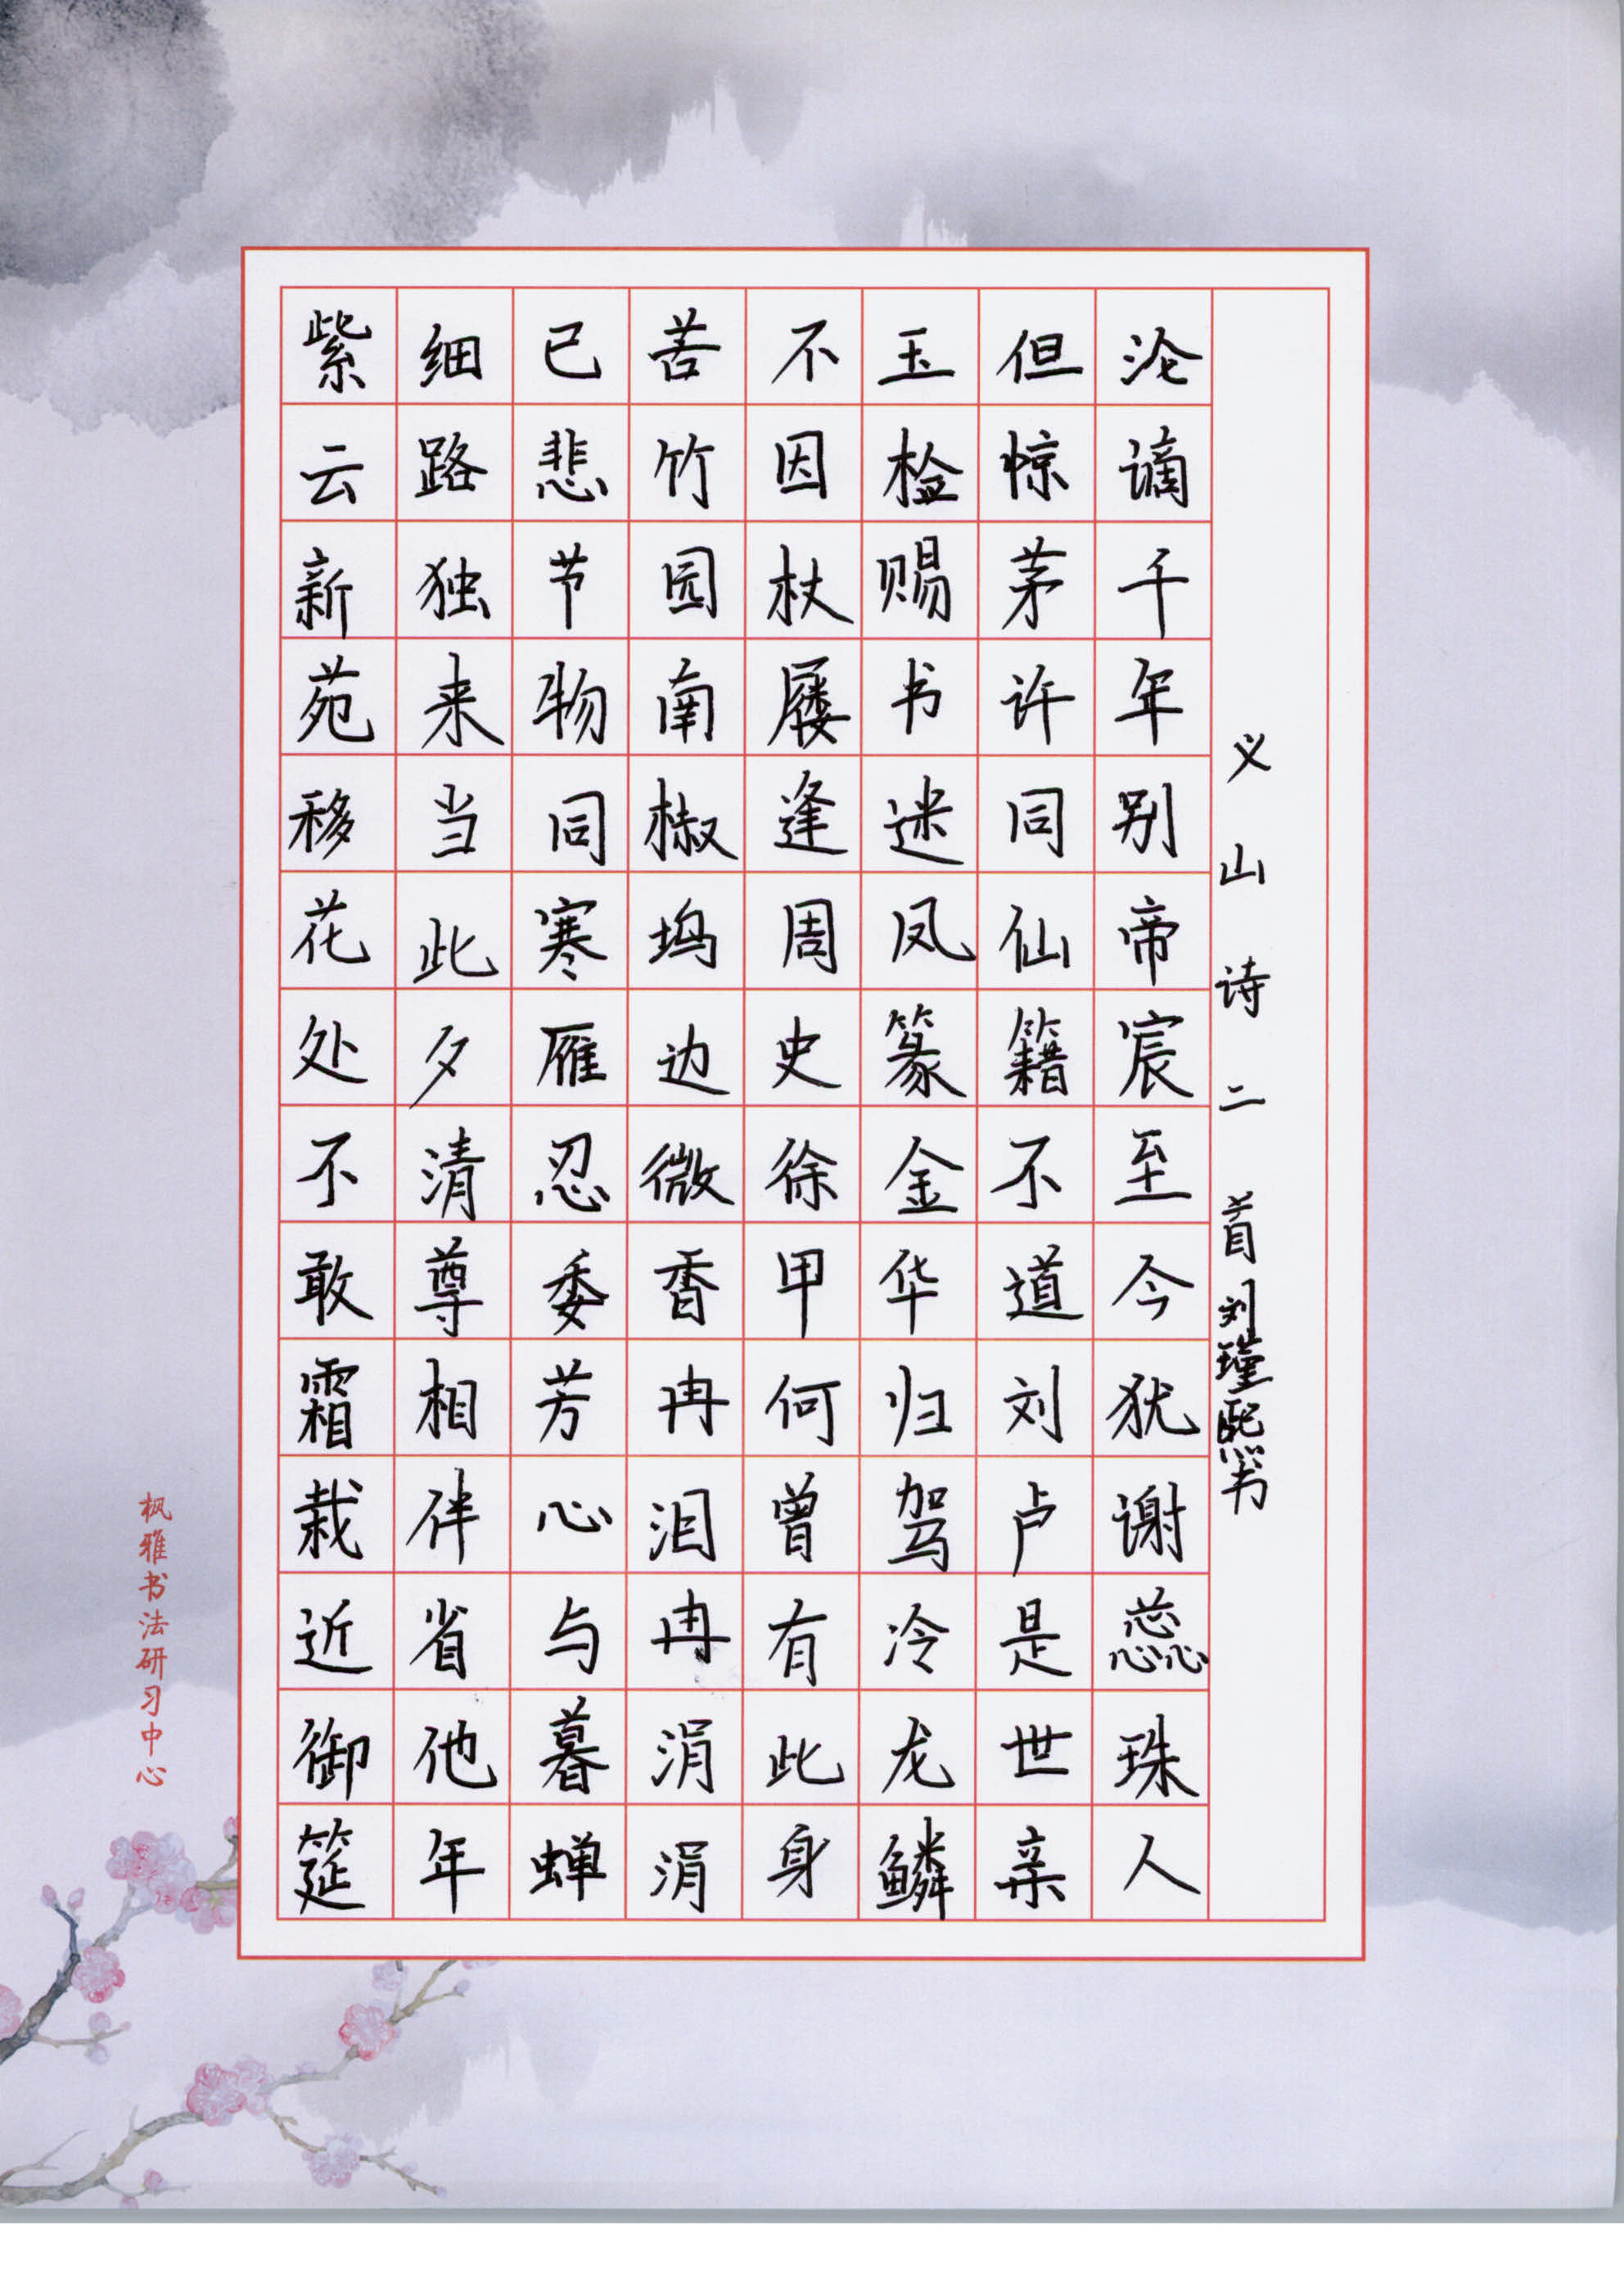 义山诗二首 刘瑾熙书
沦谪千年别帝宸至今犹谢蕊珠人
但惊茅许同仙籍不道刘卢是世亲
玉检赐书迷凤篆金华归驾冷龙鳞
不因杖屦逢周史徐甲何曾有此身
苦竹园南椒坞边微香冉冉泪涓涓
已悲节物同寒雁忍委芳心与暮蝉
细路独来当此夕清尊相伴省他年
紫云新苑移花处不敢霜栽近御筵
枫雅书法研习中心